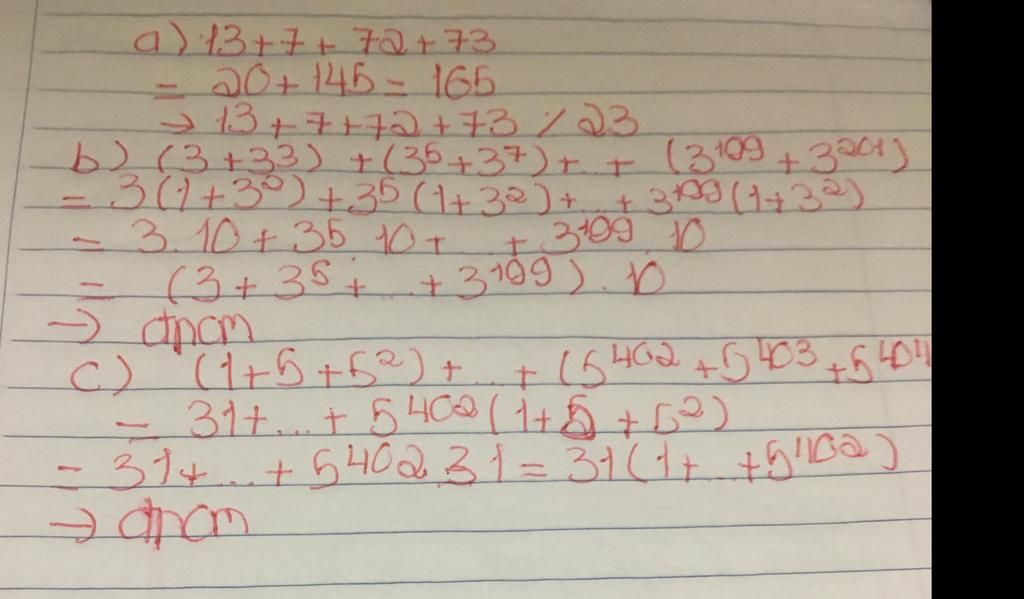 a) 13+7+72+73
= 20+145=165
→ 13+7+72+73 ⁒ 23
b) (3+3³) +(3⁵+3⁷)+..+ (3¹⁹⁹+3²⁰¹)
= 3(1+3²)+3⁵(1+3²)+...+3¹⁹⁹(1+3²)
= 3.10+35 10+ ...+3¹⁹⁹.10
= (3+3⁵+...+3¹⁹⁹).10
→ đpcm
c) (1+5+5²)+...+(5⁴⁰²+5⁴⁰³+5⁴⁰⁴
= 31+...+5⁴⁰²(1+5+5²)
= 31+...+5⁴⁰².31=31(1+...+5⁴⁰²)
→ đpcm